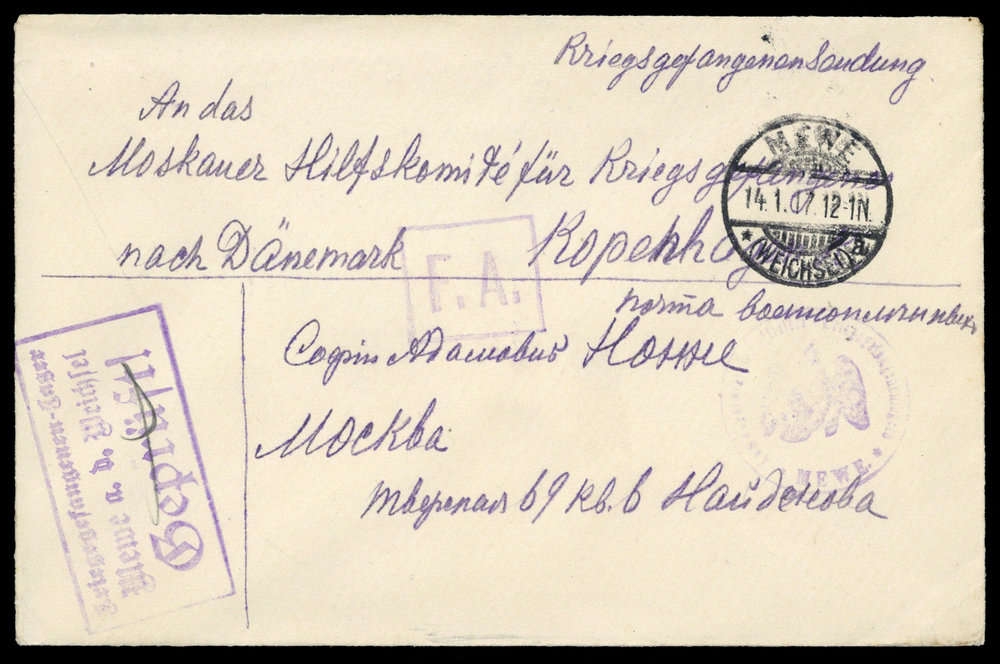 Kriegsgefangenensendung
An das
Moskauer Hilfskomité für Kriegsgefangene
nach Dänemark Kopenhag
MEWE
14.1.17.12-1N.
* (WEICHSEL) a
F. A.
почта военнопленныхъ
Софiи Адамовнѣ
Москва
Тверская 69 кв. 6 Найденова
Geprüft
Mewe a. d. Weichsel
Kriegsgefangenen-Lager
MEWE. *